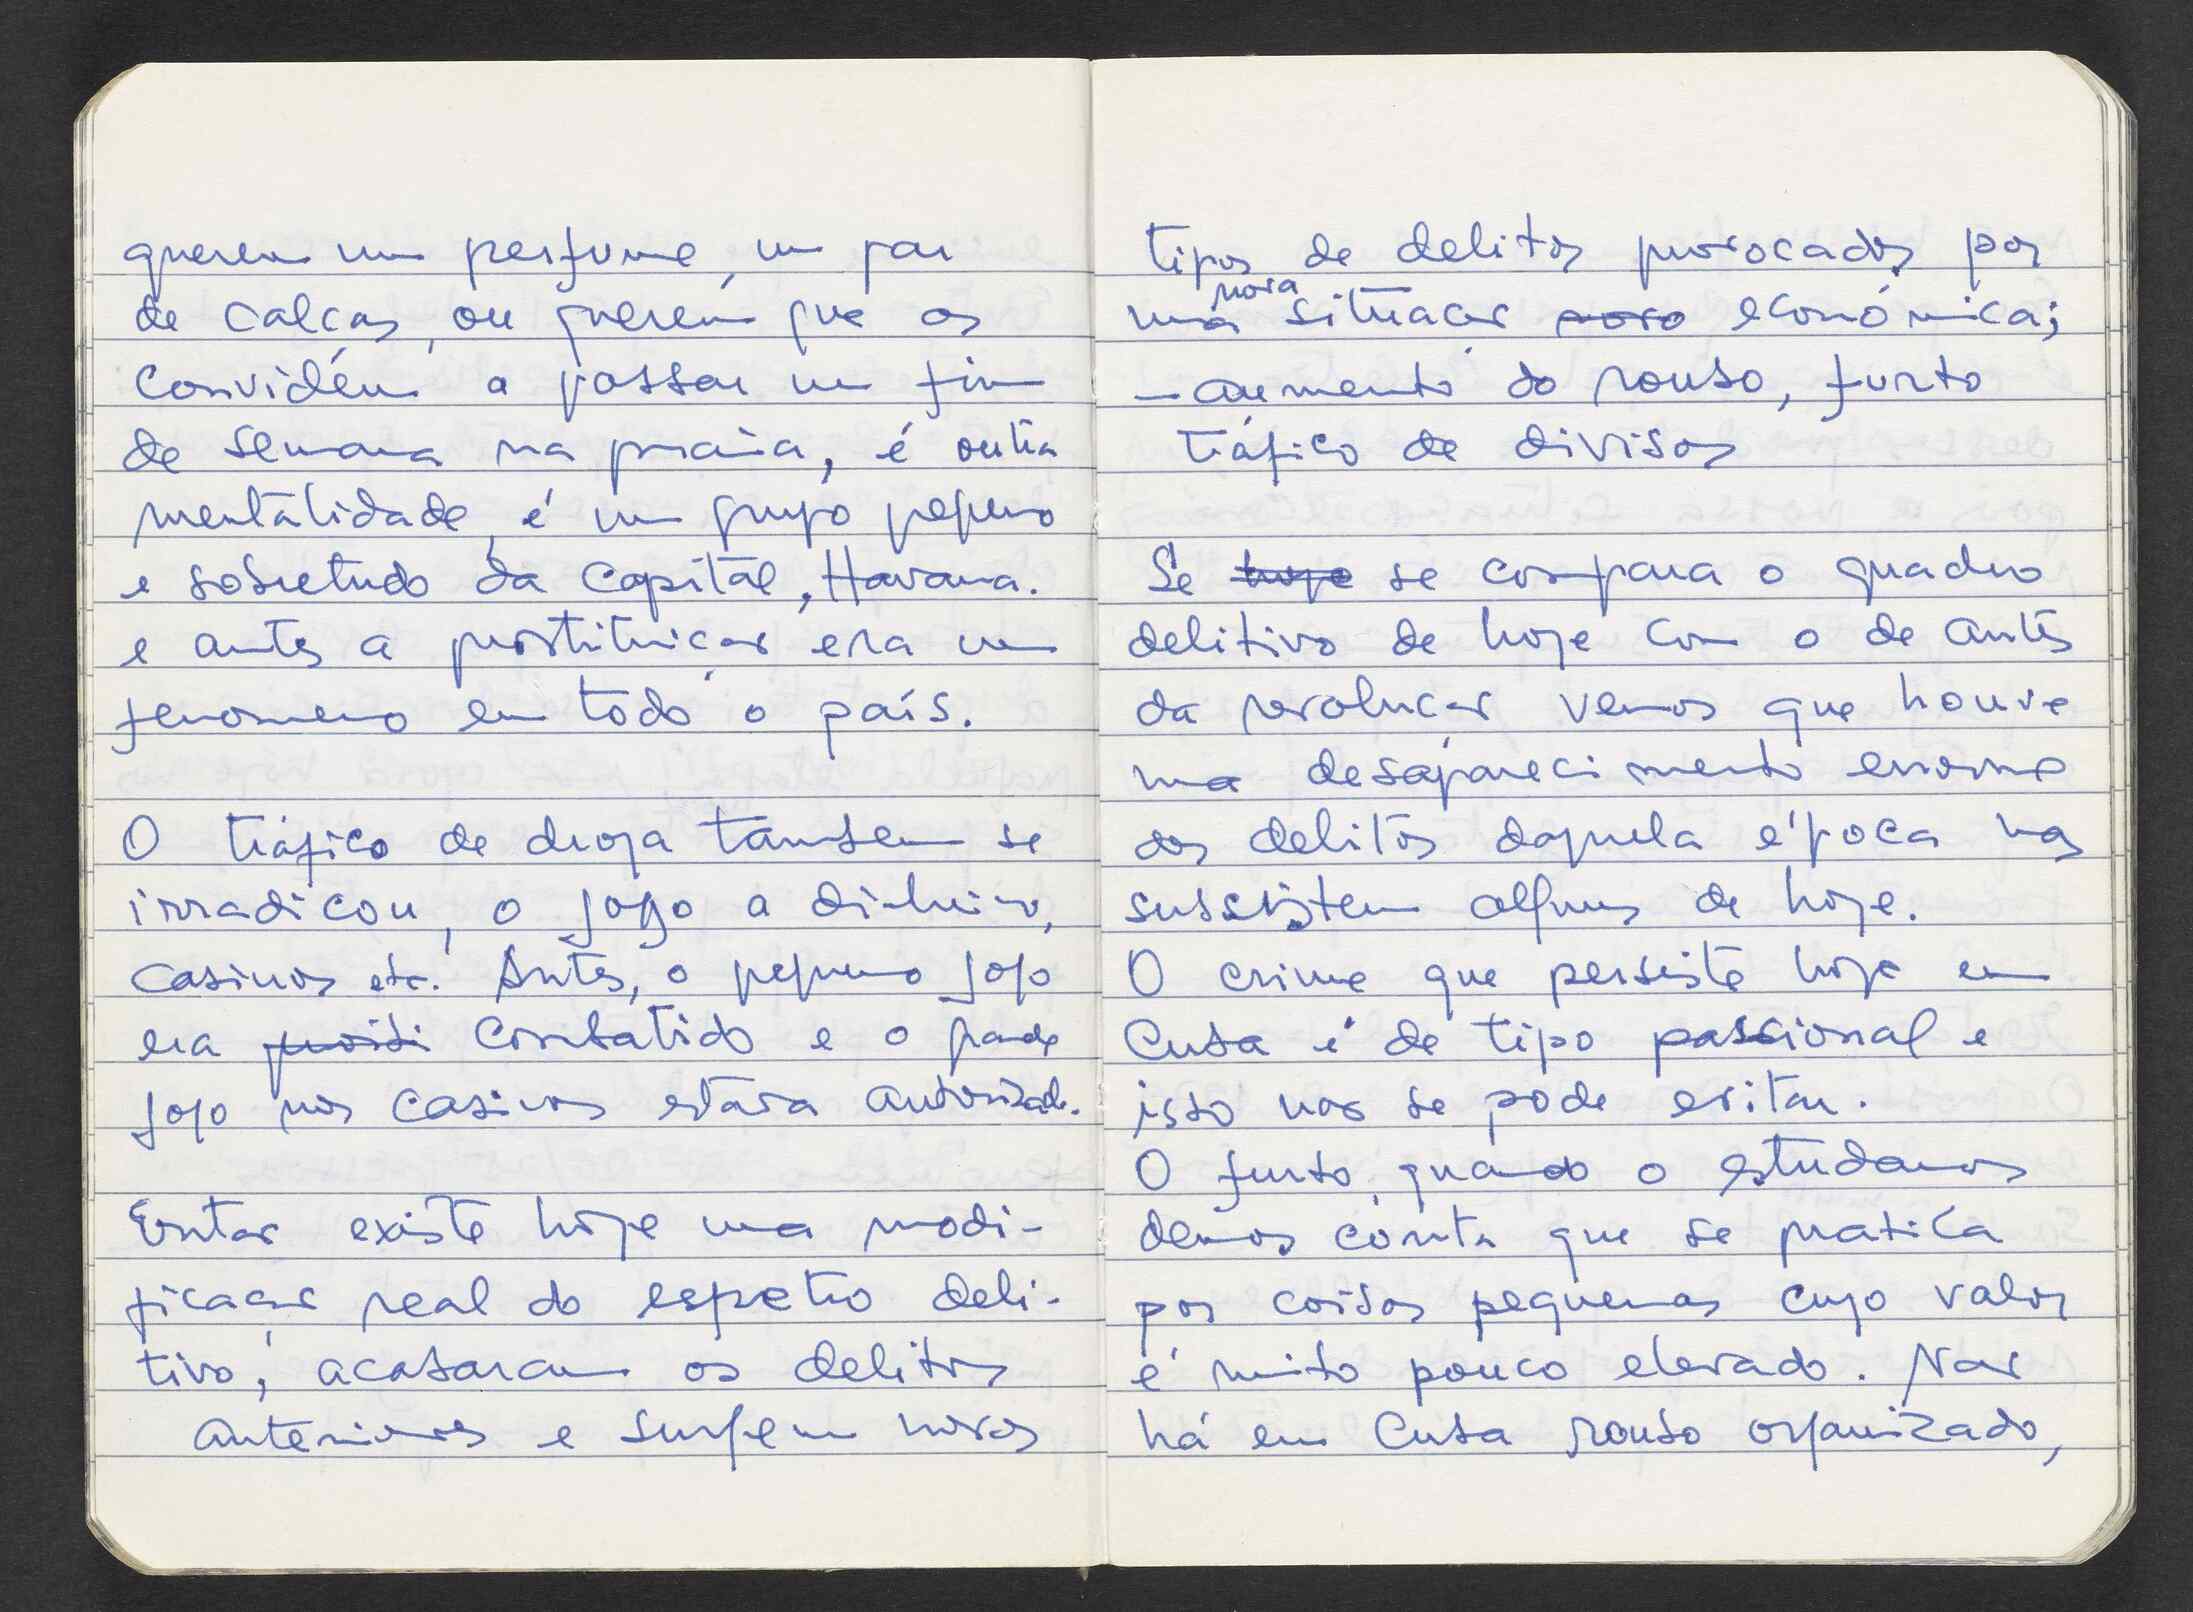 querem um perfume, um par
de calças, ou querem que os
convidém a passar um fim
de semana na praia, é outra
mentalidade, é um grupo pequeno
e sobretudo da capital, Havana.
e antes a prostituição era um
fenomeno em todo o país.
O tráfico de droga tambem se
irradicou, o jogo a dinheiro,
casinos etc. Antes, o pequeno jogo
era proibi combatido e o grande
jogo nos casinos estava autorizado.
Entao existe hoje uma modi-
ficaçao real do espetro deli-
tivo, acabaram os delitos
anteriores e surgem novos
tipos de delitos provocados por
nova
uma situaçao novo económica;
- aumento do roubo, furto
tráfico de divisas
Se hoje se compara o quadro
delitivo de hoje com o de antes
da revoluçao vemos que houve
um desaparecimento enorme
dos delitos daquela época mas
subsistem alguns de hoje.
O crime que persiste hoje em
Cuba é de tipo passional e
isso nao se pode evitar.
O furto, quando o estudamos
demos conta que se pratica
por coisas pequenas cujo valor
é muito pouco elevado. Nao
há em Cuba roubo organizado,